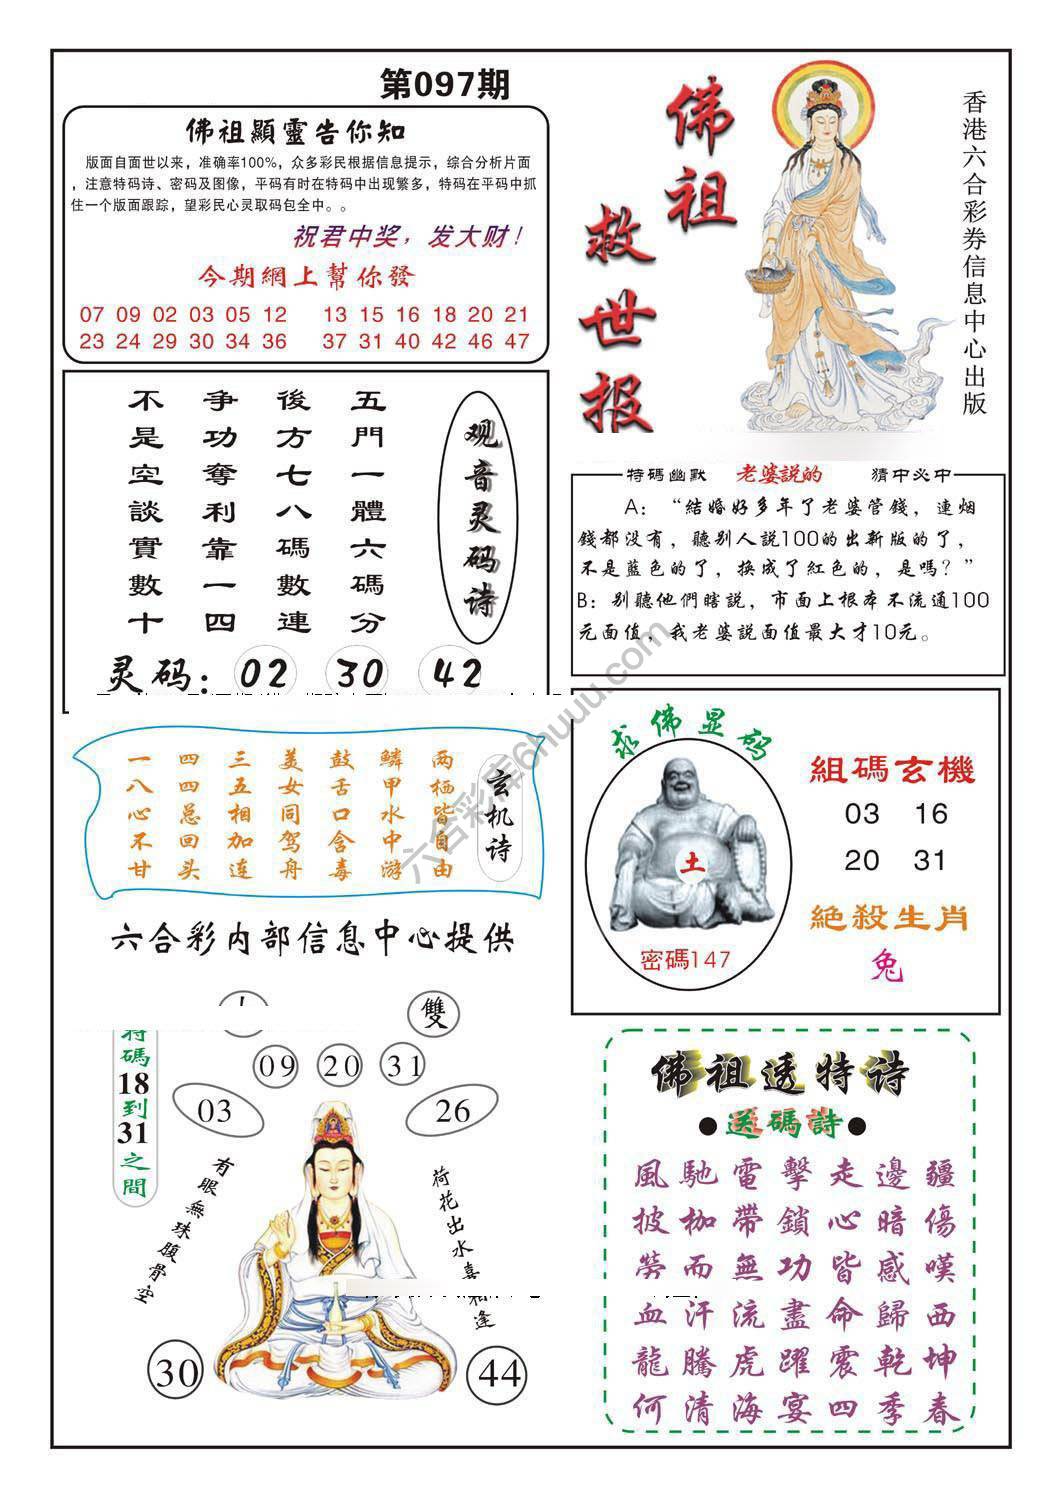 第097期
佛祖顯靈告你知
版面自面世以来，准确率100%，众多彩民根据信息提示，综合分析片面
，注意特码诗、密码及图像，平码有时在特码中出现繁多，特码在平码中抓
住一个版面跟踪，望彩民心灵取码包全中。。
祝君中奖，发大财！
今期網上幫你發
07 09 02 03 05 12 13 15 16 18 20 21
23 24 29 30 34 36 37 31 40 42 46 47
佛祖
救世报
香港六合彩券信息中心出版
观音灵码诗
五門一體六碼分
後方七八碼數連
争功奪利靠一四
不是空談實數十
灵码：02 30 42
特碼幽默 老婆説的 猜中必中
A：“結婚好多年了老婆管錢，連烟
錢都没有，聽别人説100的出新版的了，
不是藍色的了，换成了紅色的，是嗎？”
B：别聽他們瞎説，市面上根本不流通100
元面值，我老婆説面值最大才10元。
玄机诗
两栖皆自由
鳞甲水中游
鼓舌口含毒
美女同驾舟
三五相加连
四四总回头
一八心不甘
六合彩内部信息中心提供
求佛显码
土
密碼147
組碼玄機
03 16
20 31
絶殺生肖
兔
雙
09 20 31
03 26
特碼18到31之間
有眼無珠腹骨空
荷花出水喜相逢
30 44
佛祖透特诗
●送碼詩●
風馳電擊走邊疆
披枷帶鎖心暗傷
勞而無功皆感嘆
血汗流盡命歸西
龍騰虎躍震乾坤
何清海宴四季春
六合彩库6huuu.com